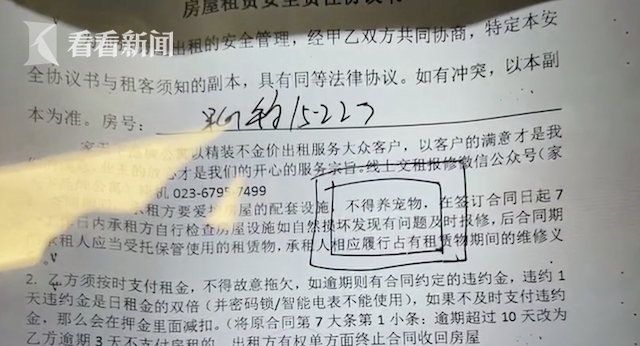 房屋租赁安全责任协议书
看看新闻
出租的安全管理，经甲乙双方共同协商，特定本安
全协议书与租客须知的副本，具有同等法律协议。如有冲突，以本副
本为准。房号：15-22
公寓以精装不金价出租服务大众客户，以客户的满意才是我
才是我们的开心的服务宗旨。线上交租报修微信公众号（家
023-679 7499
租方要爱 屋的配套设施，不得养宠物，在签订合同日起7
日内承租方自行检查房屋设施如自然损坏发现有问题及时报修，后合同期
承租人应当受托保管使用的租赁物，承租人相应履行占有租赁物期间的维修义
2. 乙方须按时支付租金，不得故意拖欠，如逾期则有合同约定的违约金，违约1
天违约金是日租金的双倍（并密码锁/智能电表不能使用），如果不及时支付违约
金，那么会在押金里面减扣。（将原合同第7大条第1小条：逾期超过10天改为
乙方逾期3天不支付房租的，出租方有权单方面终止合同收回房屋